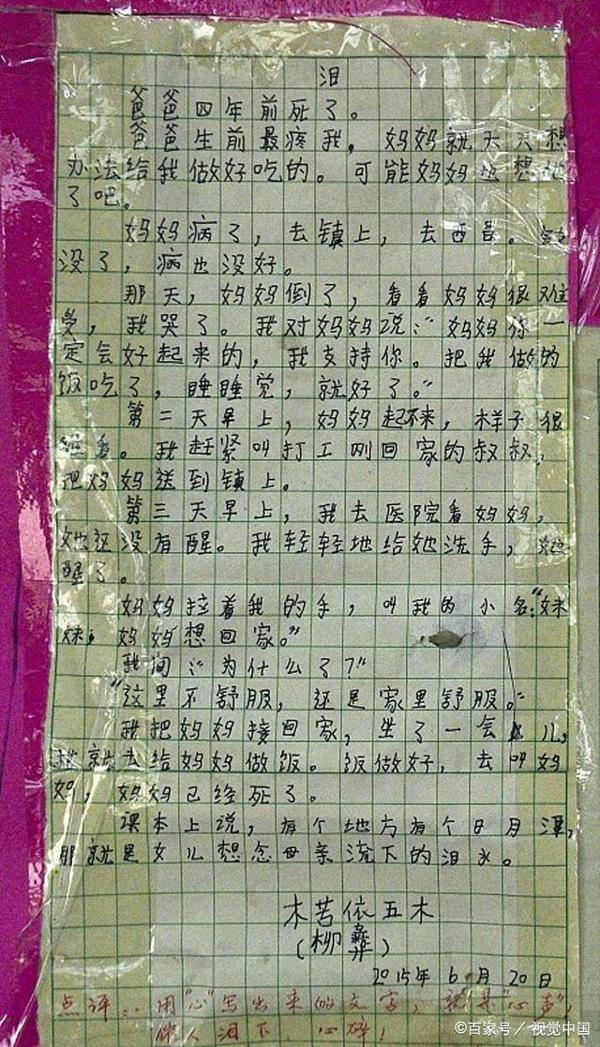 泪
爸爸四年前死了。
爸爸生前最疼我，妈妈就天天想
办法给我做好吃的。可能妈妈也想他
了吧。
妈妈病了，去镇上，去西昌。钱
没了，病也没好。
那天，妈妈倒了，看看妈妈很难
受，我哭了。我对妈妈说：“妈妈你一
定会好起来的，我支持你。把我做的
饭吃了，睡睡觉，就好了。”
第二天早上，妈妈起不来，样子很
难看。我赶紧叫打工刚回家的叔叔，
把妈妈送到镇上。
第三天早上，我去医院看妈妈，
她还没有醒。我轻轻地给她洗手，她
醒了。
妈妈拉着我的手，叫我的小名：“妹
妹，妈妈想回家。”
我问：“为什么了？”
“这里不舒服，还是家里舒服。”
我把妈妈接回家，坐了一会儿，
我就去给妈妈做饭。饭做好，去叫妈
妈，妈妈已经死了。
课本上说，有个地方有个日月潭，
那就是女儿想念母亲流下的泪水。
木苦依五木
（柳彝）
2015年6月20日
点评：用“心”写出来的文字，就是“心声”，
催人泪下 心碎！
©百家号/视觉中国